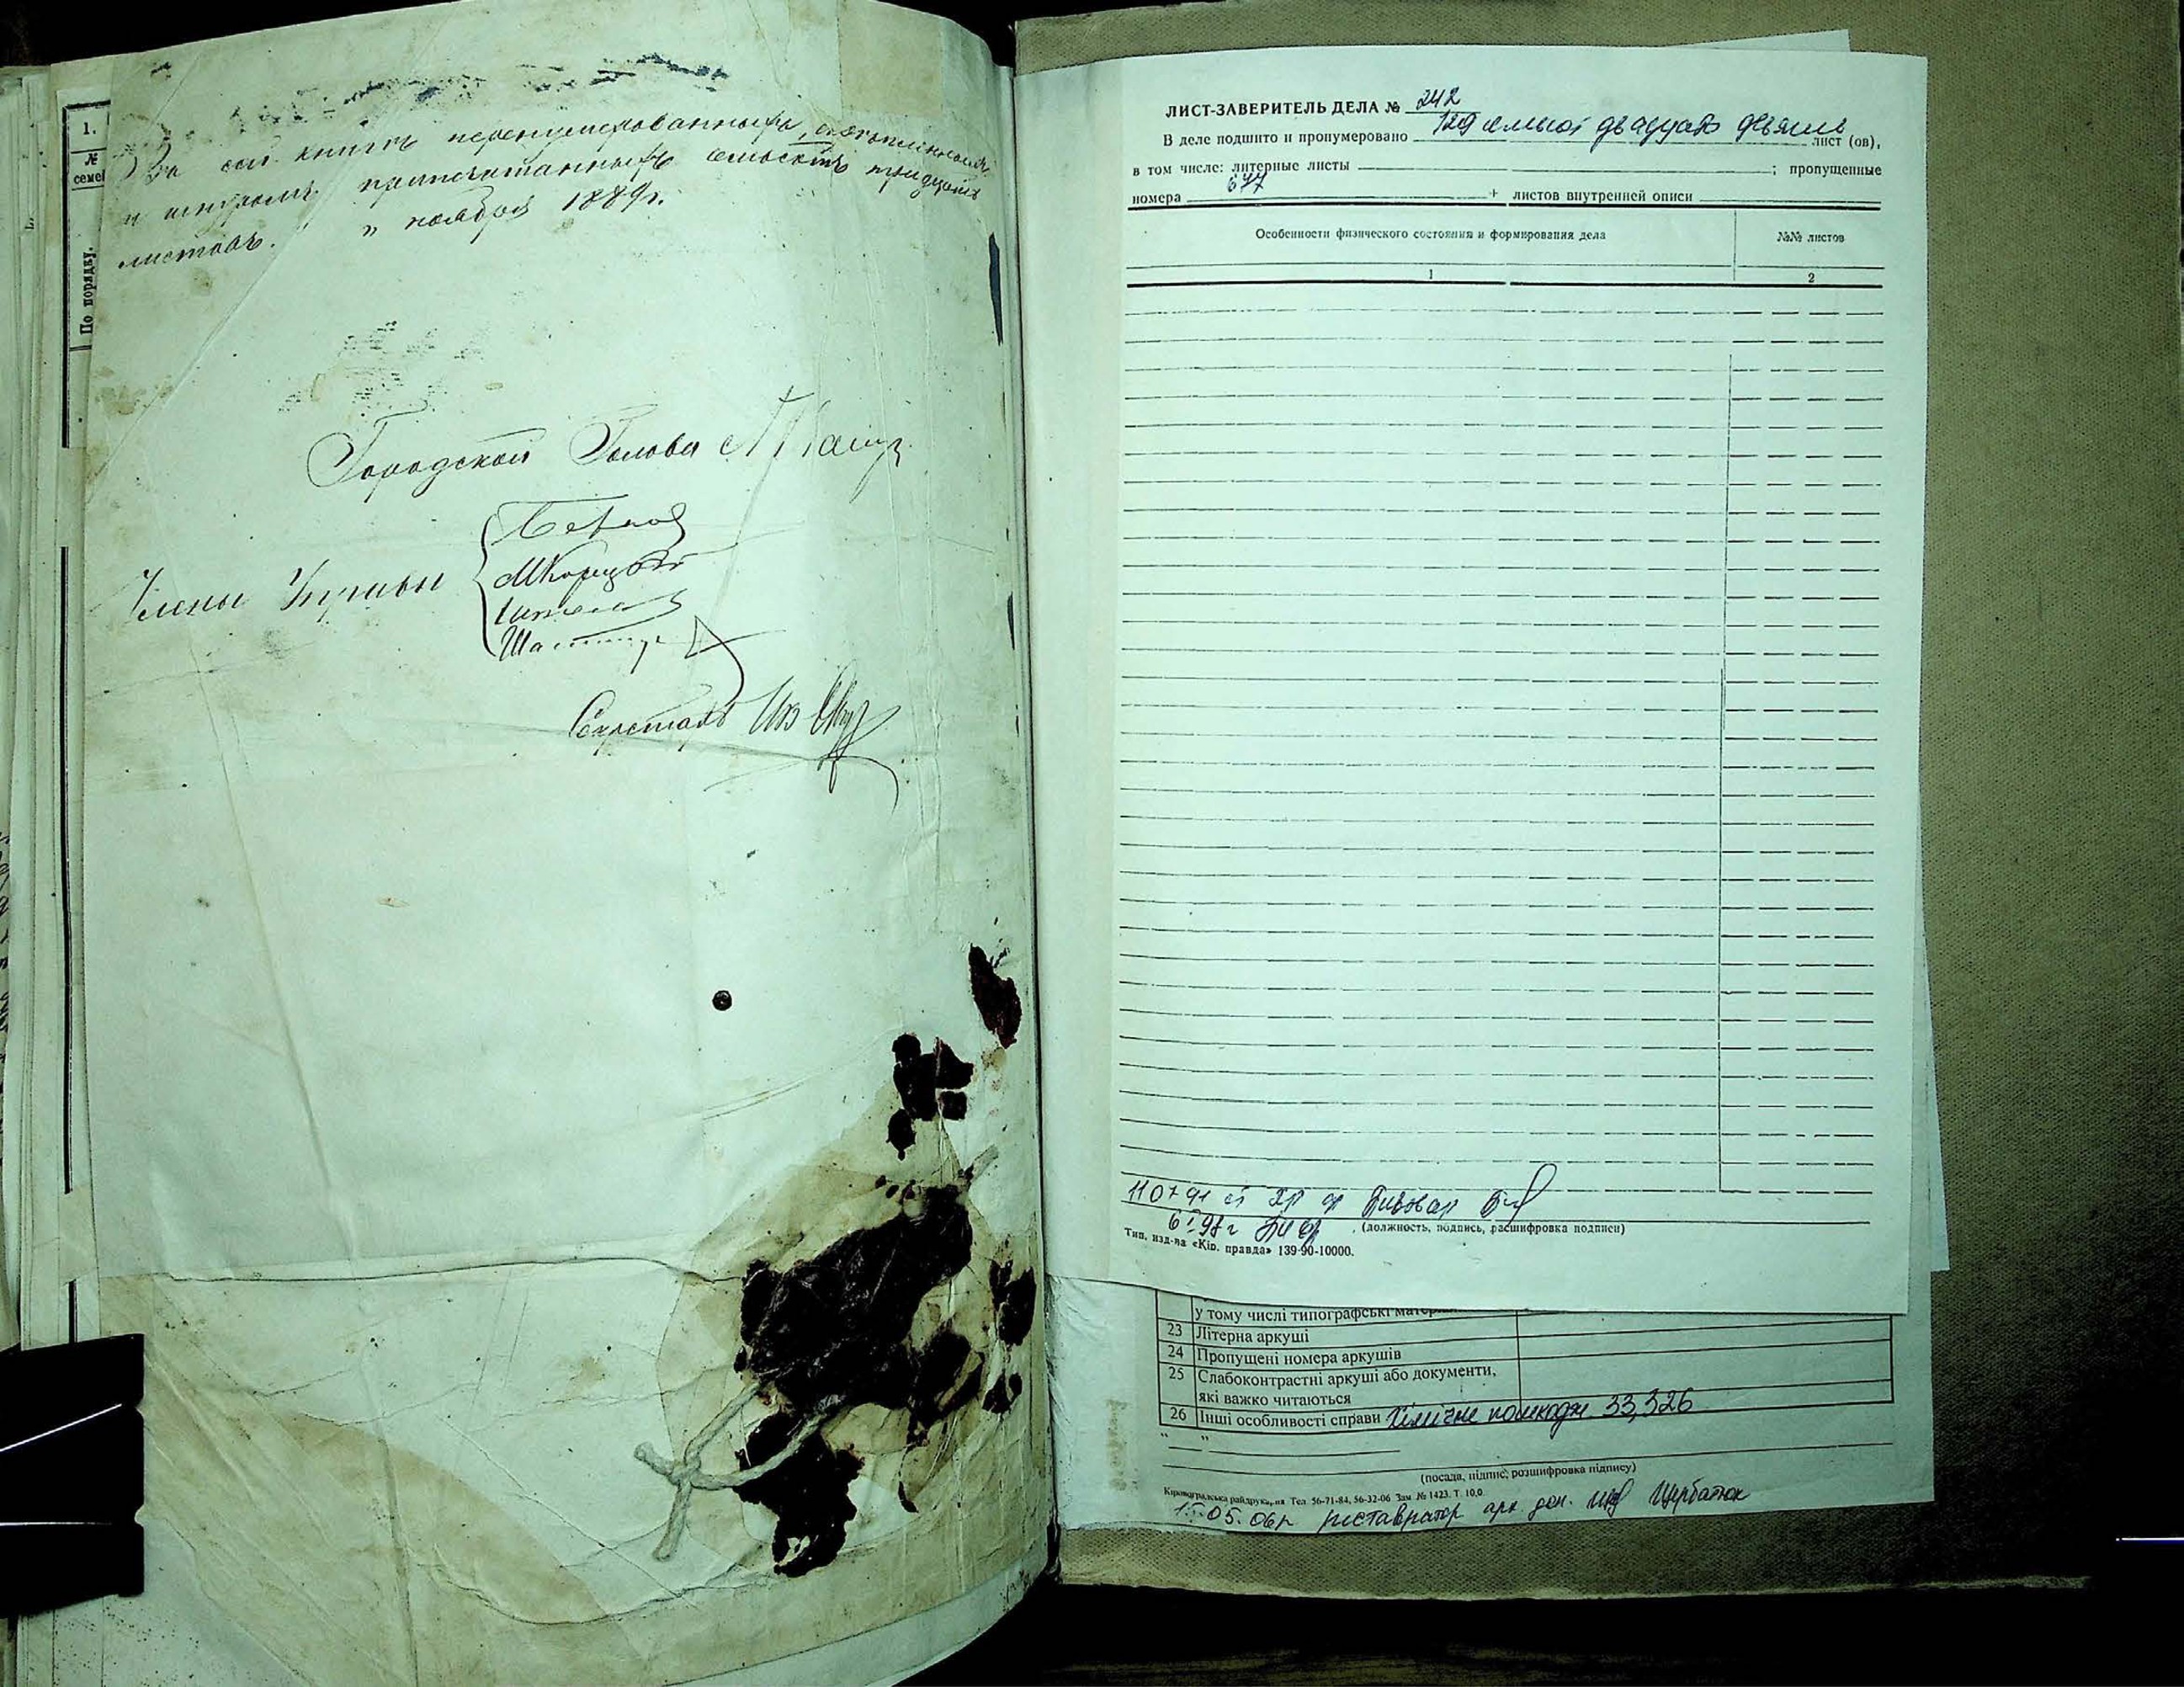 1.
№
семе
По порядку.
Въ сей книгѣ перенумерованныхъ, скрѣпленныхъ
и шнуромъ припечатанныхъ семьсотъ тридцать
листовъ. " ноября 1889 г.
Городской Голова
Члены Управы
Секретарь
ЛИСТ-ЗАВЕРИТЕЛЬ ДЕЛА № 242
В деле подшито и пронумеровано 729 семьсот двадцать девять лист (ов),
в том числе: литерные листы ; пропущенные
номера 677 + листов внутренней описи
Особенности физического состояния и формирования дела №№ листов
1 2
Пивовар
(должность, подпись, расшифровка подписи)
Тип. изд-ва «Кір. правда» 139-90-10000.
у тому числі типографські
23 Літерна аркуші
24 Пропущені номера аркушів
25 Слабоконтрастні аркуші або документи,
які важко читаються
26 Інші особливості справи Хімічне пошкодж. 33,326
" "
(посада, підпис, розшифровка підпису)
Кіровоградська райдрукарня Тел. 56-71-84, 56-32-06 Зам. № 1423. Т. 10,0
05. 06р реставратор арх. док.